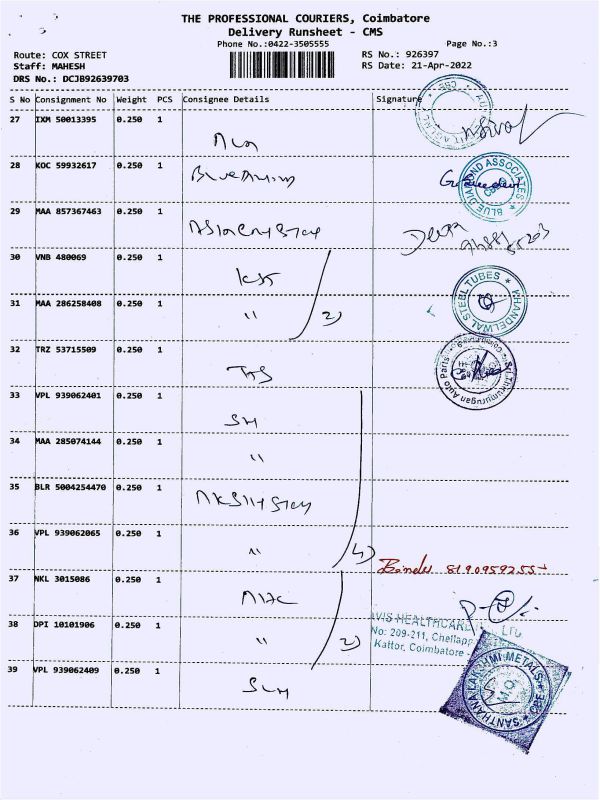 THE PROFESSIONAL COURIERS, Coimbatore
Delivery Runsheet - CMS
Phone No.:0422-3505555 Page No.:3
Route: COX STREET RS No.: 926397
Staff: MAHESH RS Date: 21-Apr-2022
DRS No.: DCJB92639703
S No Consignment No Weight PCS Consignee Details Signature
27 IXM 50013395 0.250 1
28 KOC 59932617 0.250 1
BLUE DIAMOND ASSOCIATES
29 MAA 857367463 0.250 1
30 VNB 480069 0.250 1
KST
31 MAA 286258408 0.250 1
" 2)
KHANDELWAL STEEL TUBES
32 TRZ 53715509 0.250 1
Sri Thirumurugan Auto Parts
33 VPL 939062401 0.250 1
SM
34 MAA 285074144 0.250 1
"
35 BLR 5004254470 0.250 1
36 VPL 939062065 0.250 1
" 4)
8190959255
37 NKL 3015086 0.250 1
38 DPI 10101906 0.250 1
" 2)
AVIS HEALTHCARE LTD
No: 209-211, Chellapp
Kattor, Coimbatore -
39 VPL 939062409 0.250 1
SLM
SANTHANALAKSHMI METALS CBE
M.O.